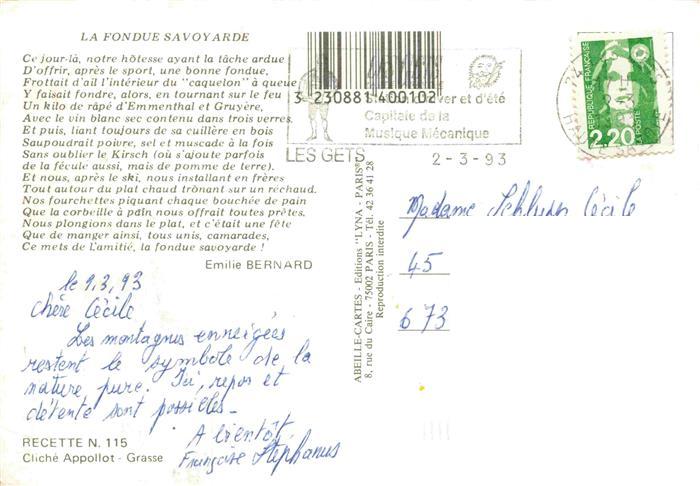 LA FONDUE SAVOYARDE
Ce jour-là, notre hôtesse ayant la tâche ardue
D'offrir, après le sport, une bonne fondue,
Frottait d'ail l'intérieur du "caquelon" à queue
Y faisait fondre, alors, en tournant sur le feu
Un kilo de râpé d'Emmenthal et Gruyère,
Avec le vin blanc sec contenu dans trois verres.
Et puis, liant toujours de sa cuillère en bois
Saupoudrait poivre, sel et muscade à la fois
Sans oublier le Kirsch (où s'ajoute parfois
de la fécule aussi, mais de pomme de terre).
Et nous, après le ski, nous installant en frères
Tout autour du plat chaud trônant sur un réchaud.
Nos fourchettes piquant chaque bouchée de pain
Que la corbeille à pain nous offrait toutes prêtes.
Nous plongions dans le plat, et c'était une fête
Que de manger ainsi, tous unis, camarades,
Ce mets de L'amitié, la fondue savoyarde !
Emilie BERNARD
le 9.3.93
Chère Cécile
Les montagnes enneigées
restent le symbole de la
nature pure. Ici, repos et
détente sont possibles.
A bientôt
Françoise Stéphanus
RECETTE N. 115
Cliché Appollot - Grasse
ABEILLE-CARTES - Editions "LYNA - PARIS"
8, rue du Caire - 75002 PARIS - Tél. 42 36 41 28
Reproduction interdite
3 230881 400102
hiver et d'été
Capitale de la
Musique Mécanique
LES GETS
2-3-93
REPUBLIQUE FRANÇAISE
LA POSTE
2,20
Madame Cécile
45
673